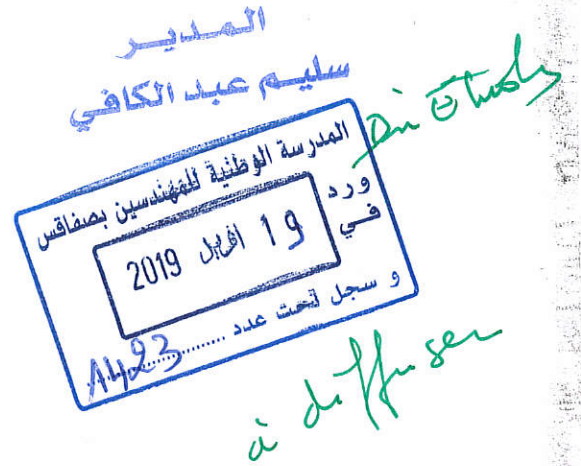 المدير
سليم عبد الكافي
المدرسة الوطنية للمهندسين بصفاقس
ورد في
19 افريل 2019
و سجل تحت عدد ........ 1423
à diffuser